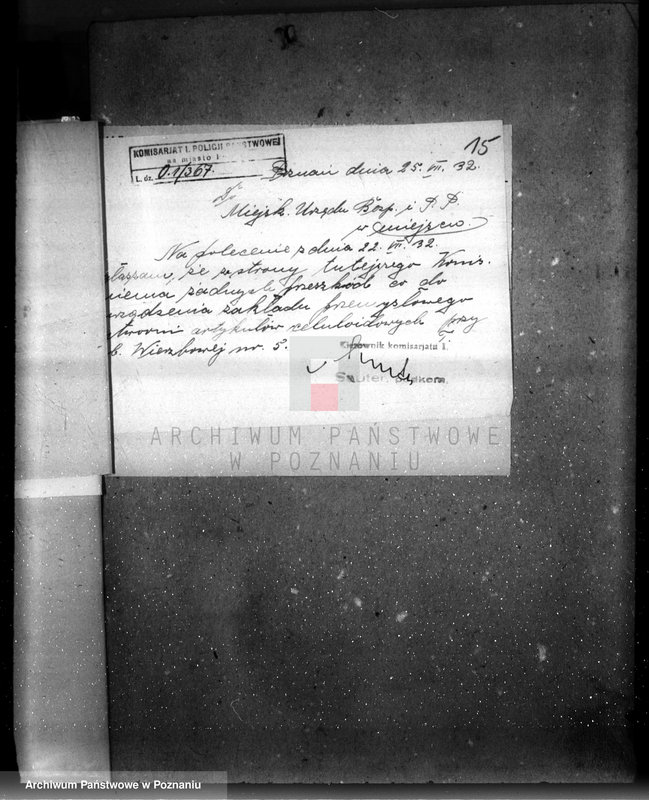 15
KOMISARJAT I. POLICJI PAŃSTWOWEJ
na miasto
L. dz. O.1/367.
Poznań dnia 25. VII. 32.
Do
Miejsk. Urzędu Bezp. i P. P.
w miejscu.
Na polecenie z dnia 22. VII. 32.
głaszam, że ze strony tutejszego Komis.
niema żadnych przeszkód co do
urządzenia zakładu przemysłowego
wytwórni artykułów celuloidowych przy
ul. Wierzbowej nr. 5.
Kierownik komisarjatu I.
Sauter, podkom.
ARCHIWUM PAŃSTWOWE
W POZNANIU
Archiwum Państwowe w Poznaniu